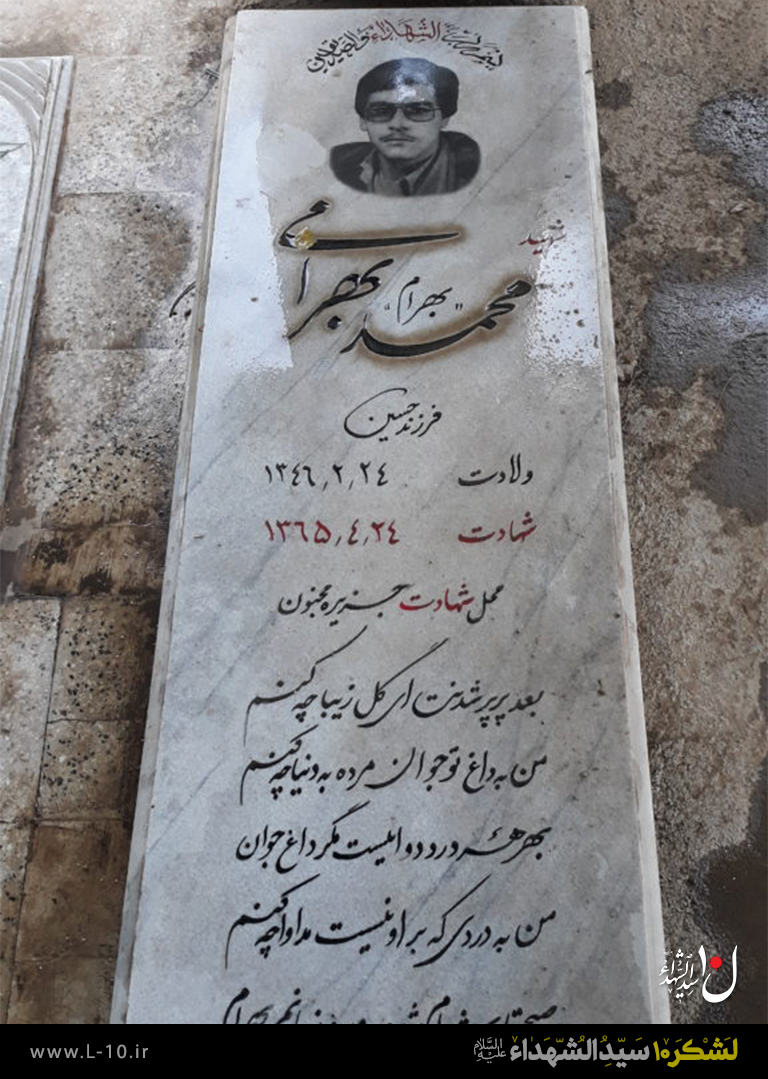 بسم رب الشهداء والصدیقین
شهید
محمد "بهرام" بهرامی
فرزند حسین
ولادت ۱۳٤٦٫۲٫۲٤
شهادت ۱۳٦۵٫٤٫۲٤
محل شهادت جزیره مجنون
بعد پرپر شدنت ای گل زیبا چه کنم
من به داغ تو جوان مرده به دنیا چه کنم
بهر هر درد دوا نیست مگر داغ جوان
من به دردی که بر او نیست مداوا چه کنم
ل۱۰ سیدالشهداء
لشکر۱۰ سیدالشهداء علیه السلام
www.L-10.ir